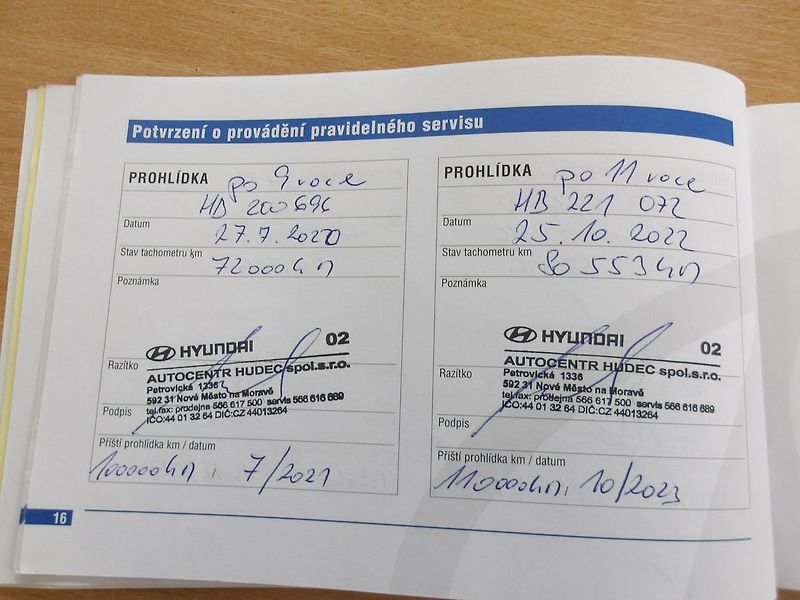 Potvrzení o provádění pravidelného servisu
PROHLÍDKA po 9 roce
HB 200696
Datum 27.7.2020
Stav tachometru km 72000km
Poznámka
HYUNDAI 02
Razítko
AUTOCENTR HUDEC spol.s.r.o.
Petrovická 1336
592 31 Nové Město na Moravě
tel.fax: prodejna 566 617 500 servis 566 616 689
IČO:44 01 32 64 DIČ:CZ 44013264
Podpis
Příští prohlídka km / datum
100000km, 7/2021
PROHLÍDKA po 11 roce
HB 221 072
Datum 25.10.2022
Stav tachometru km 80 553km
Poznámka
HYUNDAI 02
Razítko
AUTOCENTR HUDEC spol.s.r.o.
Petrovická 1336
592 31 Nové Město na Moravě
tel.fax: prodejna 566 617 500 servis 566 616 689
IČO:44 01 32 64 DIČ:CZ 44013264
Podpis
Příští prohlídka km / datum
110000km, 10/2023
16